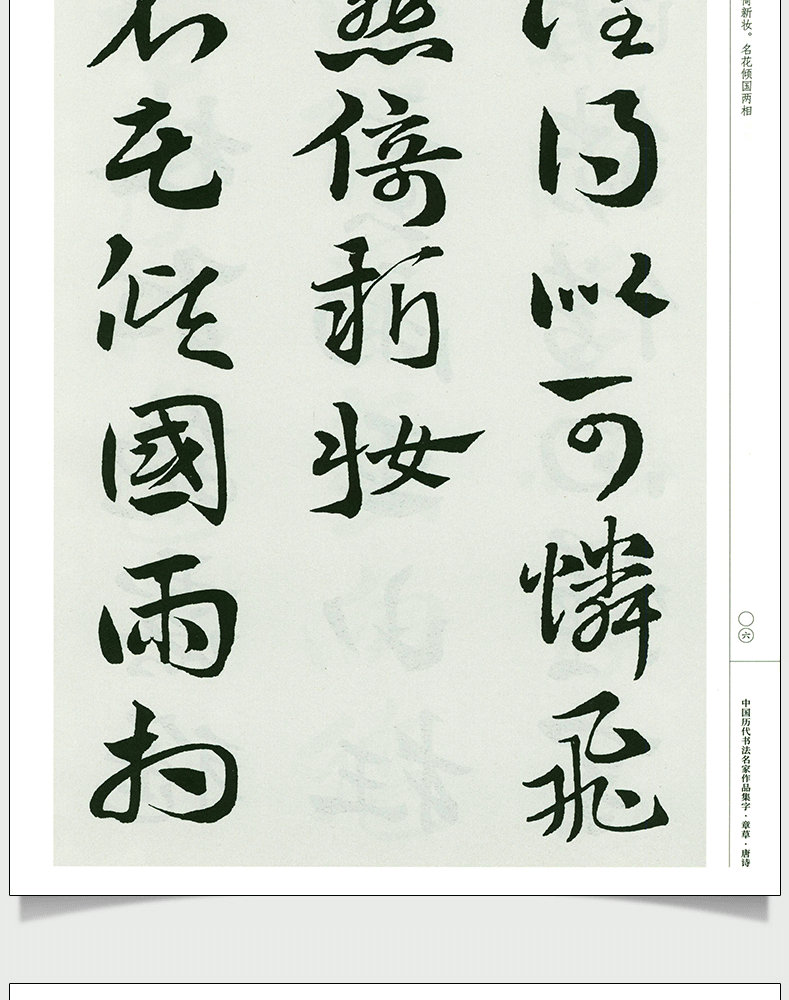 新妆。名花倾国两相
〇六
中国历代书法名家作品集字·章草·唐诗
誰得似可憐飛
燕倚新妝
名花傾國兩相